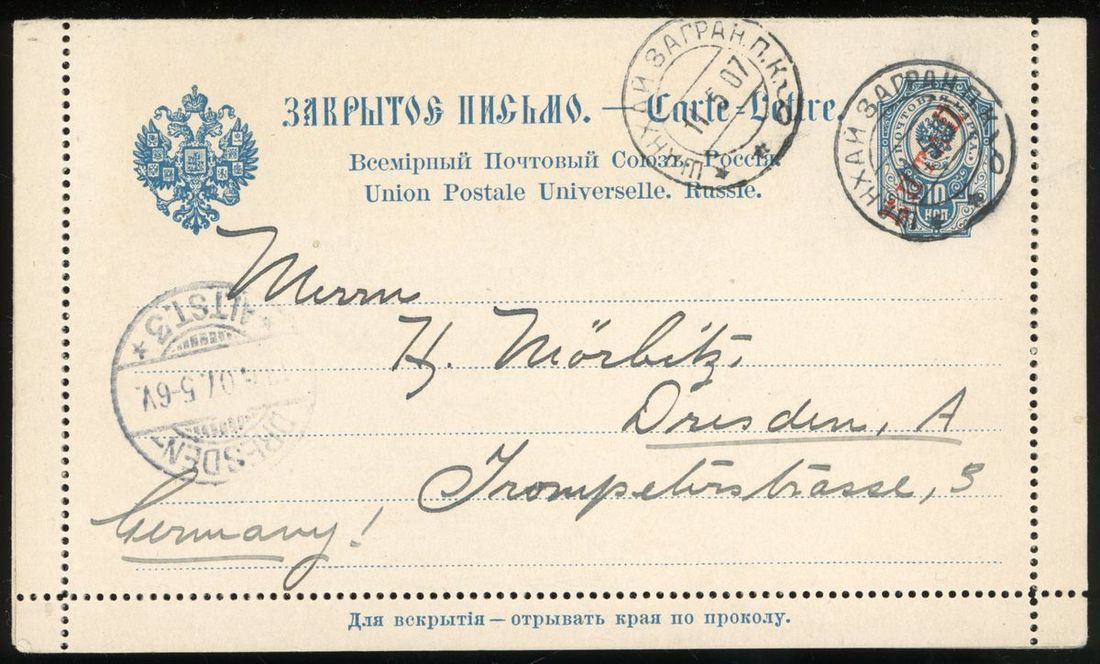 ЗАКРЫТОЕ ПИСЬМО. — Carte-Lettre.
Всемірный Почтовый Союзъ. Россія.
Union Postale Universelle. Russie.
ШАНХАЙ ЗАГРАН. П. К-О
11 5 07
НХАЙ ЗАГРАН
ПОЧТОВАЯ МАРКА
КИТАЙ
10
КОП
Herrn
H. Mörbitz.
Dresden, A
Trompeterstrasse, 3
Germany!
ALTST. 3
07. 5-6V.
DRESDEN-
Для вскрытія — отрывать края по проколу.